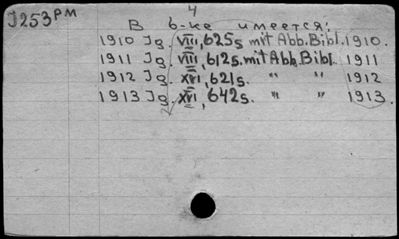 J253PM
4
В б-ке имеется:
1910 Jg. VIII, 625s mit Abb. Bibl. 1910.
1911 Jg. VIII, 612s. mit Abb. Bibl. 1911
1912 Jg. XVI, 621s. " " 1912
1913 Jg. XVI, 642s. " " 1913.